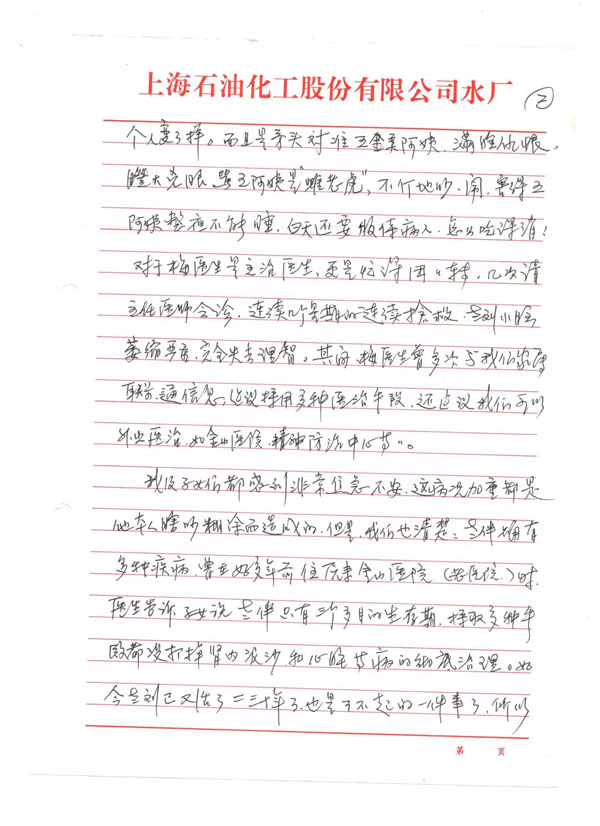 上海石油化工股份有限公司水厂
②
个人变了样。而且是矛头对准王阿姨、满脸仇眼,
瞪大亮眼,骂王阿姨是"雌老虎",不介地吵、闹,害得王
阿姨整夜不能睡,白天还要服侍病人,怎么吃得消!
对于梅医生是主治医生,更是忙得团々转,几次请
主任医师会诊,连续的连续抢救,老刘小脑
萎缩严重,完全失去理智。其间,梅医生曾多次与我们家属
联系、通信息,建议采用多种医治手段,还建议我们可以
外出医治,如金山医院、精神防治中心等。
我及子女们都感到非常焦急不安,这病次加重都是
他本人瞎吵糊涂而造成的,但是,我们也清楚:老伴拥有
多种疾病,曾在好多年前住院金山医院(老医院)时,
医生告诉子女说老伴只有三个多月的生存期,采取多种手
段都没打掉肾内泥沙和心脏等病的彻底治理。如
今老刘已又活了二三十年了,也是了不起的一件事了,所以
第 页